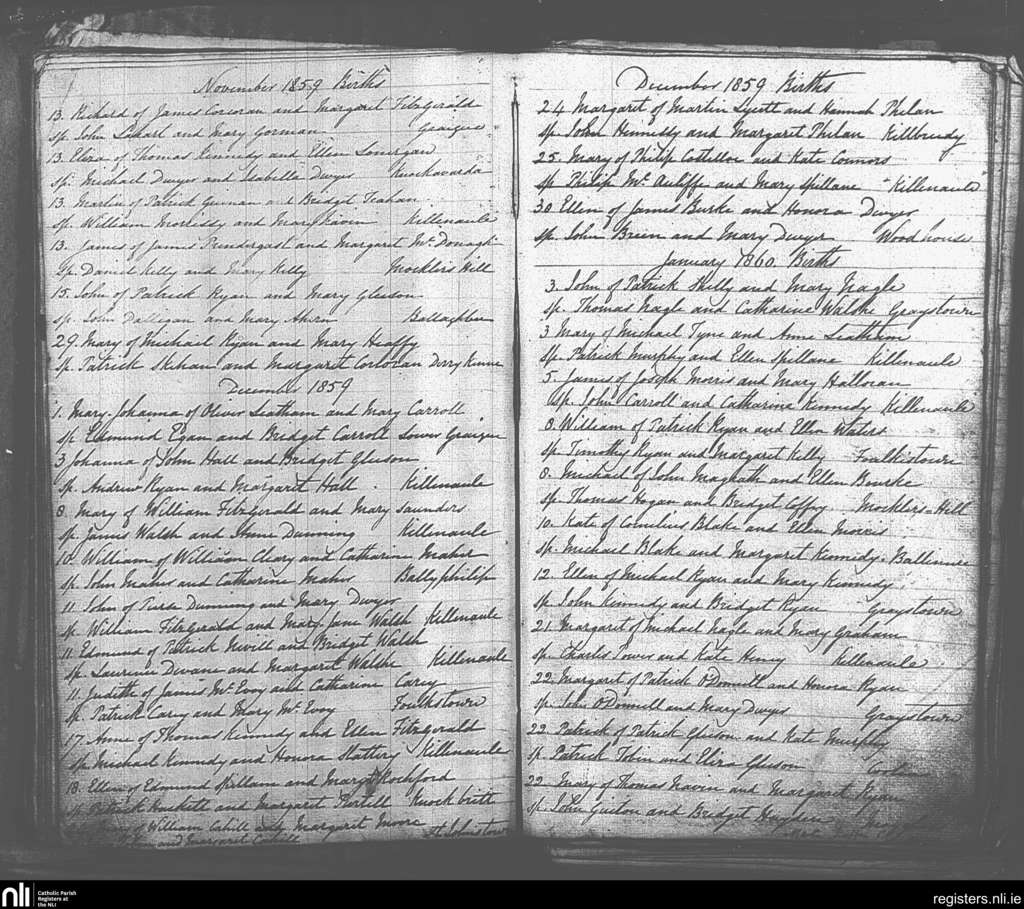 November 1859 Births
13. Richard of James Corcoran and Margaret FitzGerald
sp. John and Mary Gorman Graigue
13. Eliza of Thomas Kennedy and Ellen Lonergan
sp. Michael Dwyer and Isabella Dwyer Knockavarda
13. Martin of Patrick and Bridget Teahan
sp. William Morrissy and Mary Killenaule
13. James of James Pendergast and Margaret McDonagh
sp. Daniel Kelly and Mary Kelly Mocklers Hill
15. John of Patrick Ryan and Mary Gleeson
sp. John Dalligan and Mary Ahern
29. Mary of Michael Ryan and Mary Heaffy
sp. Patrick Skehan and Margaret Corcoran
December 1859
1. Mary-Johanna of Oliver Leatham and Mary Carroll
sp Edmund Egan and Bridget Carroll Lower Graigue
3 Johanna of John Hall and Bridget Gleeson
sp. Andrew Ryan and Margaret Hall. Killenaule
8. Mary of William FitzGerald and Mary Saunders
sp. James Walsh and Anne Dunning Killenaule
10. William of William Cleary and Catharine Maher
sp. John Maher and Catharine Maher Ballyphilip
11. John of Pierse Dunning and Mary Dwyer
sp. William FitzGerald and Mary Jane Walsh Killenaule
11. Edmund of Patrick Nevill and Bridget Walsh
sp. Laurence Devane and Margaret Walshe Killenaule
11. Judith of James McEvoy and Catharine Carey
sp. Patrick Carey and Mary McEvoy Foulkstown
17. Anne of Thomas Kennedy and Ellen Fitzgerald
sp Michael Kennedy and Honora Slattery Killenaule
18. Ellen of Edmund Spillane and Margt Rochford
sp Patrick Hackett and Margaret Knockbritt
of William Cahill and Margaret Moore
and Margaret Cahill St Johnstown
December 1859 Births
24 Margaret of Martin and Hannah Phelan
sp. John Hennessy and Margaret Phelan Killbreedy
25. Mary of Philip Costelloe and Kate Connors
sp Philip McAuliffe and Mary Spillane "Killenaule"
30 Ellen of James Burke and Honora Dwyer
sp. John Breen and Mary Dwyer Woodhouse
January 1860. Births
3. John of Patrick and Mary Nagle
sp. Thomas Nagle and Catharine Walshe Graystown
3 Mary of Michael Tyne and Anne Leatham
sp. Patrick Murphy and Ellen Spillane Killenaule
5. James of Joseph Morris and Mary Halloran
sp. John Carroll and Catharine Kennedy Killenaule
8. William of Patrick Ryan and Ellen Waters
sp. Timothy Ryan and Margaret Kelly Foulkstown
8. Michael of John Magrath and Ellen Bourke
sp. Thomas Hogan and Bridget Coffey Mocklers-Hill
10. Kate of Cornelius Blake and Ellen Morris
sp. Michael Blake and Margaret Kennedy.
12. Ellen of Michael Ryan and Mary Kennedy
sp. John Kennedy and Bridget Ryan Graystown
21. Margaret of Michael Nagle and Mary Graham
sp. Charles Power and Kate Heney Killenaule
22. Margaret of Patrick O'Donnell and Honora Ryan
sp. John O'Donnell and Mary Dwyer Graystown
22 Patrick of Patrick Gleeson and Kate Murphy
sp. Patrick Tobin and Eliza Gleeson Coolin
22 Mary of Thomas Navin and Margaret Ryan
sp. John and Bridget Hayden
nli Catholic Parish
Registers at
the NLI
registers.nli.ie